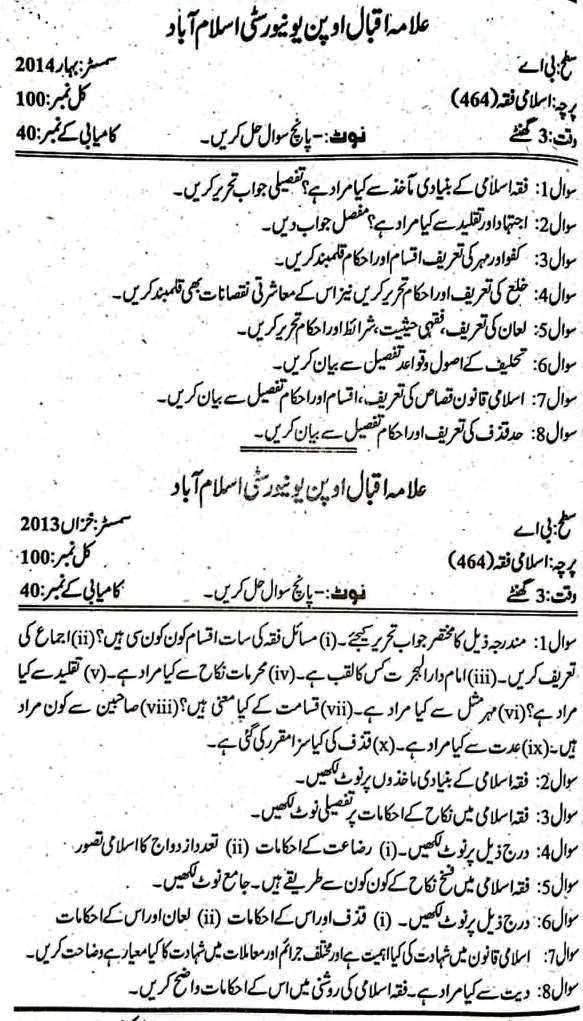 علامہ اقبال اوپن یونیورسٹی اسلام آباد
سطح: بی اے سمسٹر: بہار 2014
پرچہ: اسلامی فقہ (464) کل نمبر: 100
وقت: 3 گھنٹے نوٹ:- پانچ سوال حل کریں۔ کامیابی کے نمبر: 40
سوال 1: فقہ اسلامی کے بنیادی مآخذ سے کیا مراد ہے؟ تفصیلی جواب تحریر کریں۔
سوال 2: اجتہاد اور تقلید سے کیا مراد ہے؟ مفصل جواب دیں۔
سوال 3: کفو اور مہر کی تعریف اقسام اور احکام قلمبند کریں۔
سوال 4: خلع کی تعریف اور احکام تحریر کریں نیز اس کے معاشرتی نقصانات بھی قلمبند کریں۔
سوال 5: لعان کی تعریف، فقہی حیثیت، شرائط اور احکام تحریر کریں۔
سوال 6: تحلیف کے اصول و قواعد تفصیل سے بیان کریں۔
سوال 7: اسلامی قانون قصاص کی تعریف، اقسام اور احکام تفصیل سے بیان کریں۔
سوال 8: حد قذف کی تعریف اور احکام تفصیل سے بیان کریں۔
علامہ اقبال اوپن یونیورسٹی اسلام آباد
سطح: بی اے سمسٹر: خزاں 2013
پرچہ: اسلامی فقہ (464) کل نمبر: 100
وقت: 3 گھنٹے نوٹ:- پانچ سوال حل کریں۔ کامیابی کے نمبر: 40
سوال 1: مندرجہ ذیل کا مختصر جواب تحریر کیجئے۔ (i) مسائل فقہ کی سات اقسام کون کون سی ہیں؟ (ii) اجماع کی
تعریف کریں۔ (iii) امام دار الہجرت کس کا لقب ہے۔ (iv) محرمات نکاح سے کیا مراد ہے۔ (v) تقلید سے کیا
مراد ہے؟ (vi) مہر مثل سے کیا مراد ہے۔ (vii) قسامت کے کیا معنی ہیں؟ (viii) صاحبین سے کون مراد
ہیں۔ (ix) عدت سے کیا مراد ہے۔ (x) قذف کی کیا سزا مقرر کی گئی ہے۔
سوال 2: فقہ اسلامی کے بنیادی ماخذوں پر نوٹ لکھیں۔
سوال 3: فقہ اسلامی میں نکاح کے احکامات پر تفصیلی نوٹ لکھیں۔
سوال 4: درج ذیل پر نوٹ لکھیں۔ (i) رضاعت کے احکامات (ii) تعدد ازدواج کا اسلامی تصور
سوال 5: فقہ اسلامی میں فسخ نکاح کے کون کون سے طریقے ہیں۔ جامع نوٹ لکھیں۔
سوال 6: درج ذیل پر نوٹ لکھیں۔ (i) قذف اور اس کے احکامات (ii) لعان اور اس کے احکامات
سوال 7: اسلامی قانون میں شہادت کی کیا اہمیت ہے اور مختلف جرائم اور معاملات میں شہادت کا کیا معیار ہے وضاحت کریں۔
سوال 8: دیت سے کیا مراد ہے۔ فقہ اسلامی کی روشنی میں اس کے احکامات واضح کریں۔